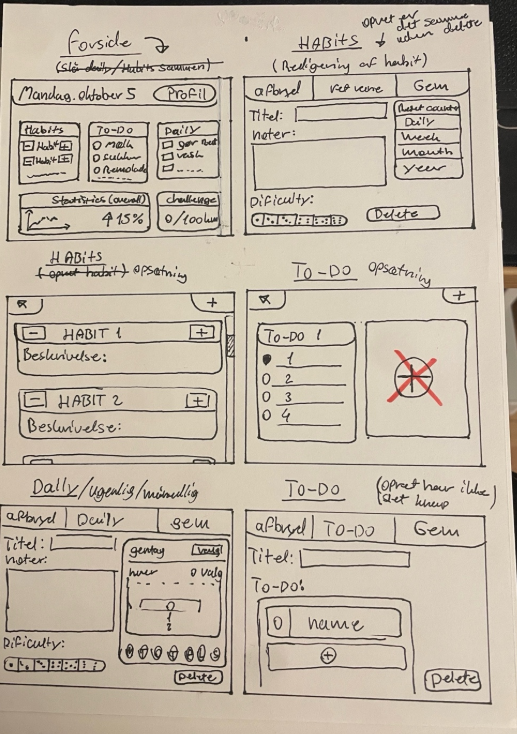 Forside
(Slå daily/Habits sammen)
Mandag. oktober 5 Profil
Habits
- Habit +
- Habit +
To-Do
O mælk
O sukker
O Remolade
Daily
gør rent
vask
Statistics (overall)
↑ 15%
challenge
0/100km
opret er
det samme
uden delete
HABITS
(Redigering af habit)
afbryd ret vane Gem
Titel:
noter:
Reset counter
Daily
week
month
year
Dificulty:
Delete
HABITS
(opret habit) opsætning
+
- HABIT 1 +
Beskrivelse:
- HABIT 2 +
Beskrivelse:
TO-DO opsætning
+
To-DO 1
1
2
3
4
+
Daily/ugenlig/månedlig
afbryd Daily gem
Titel:
noter:
gentag vælg
hver 0 valg
0
1
2
Dificulty:
Delete
TO-DO
(opret har ikke
slet knap)
afbryd TO-DO Gem
Titel:
TO-DO:
0 name
+
Delete